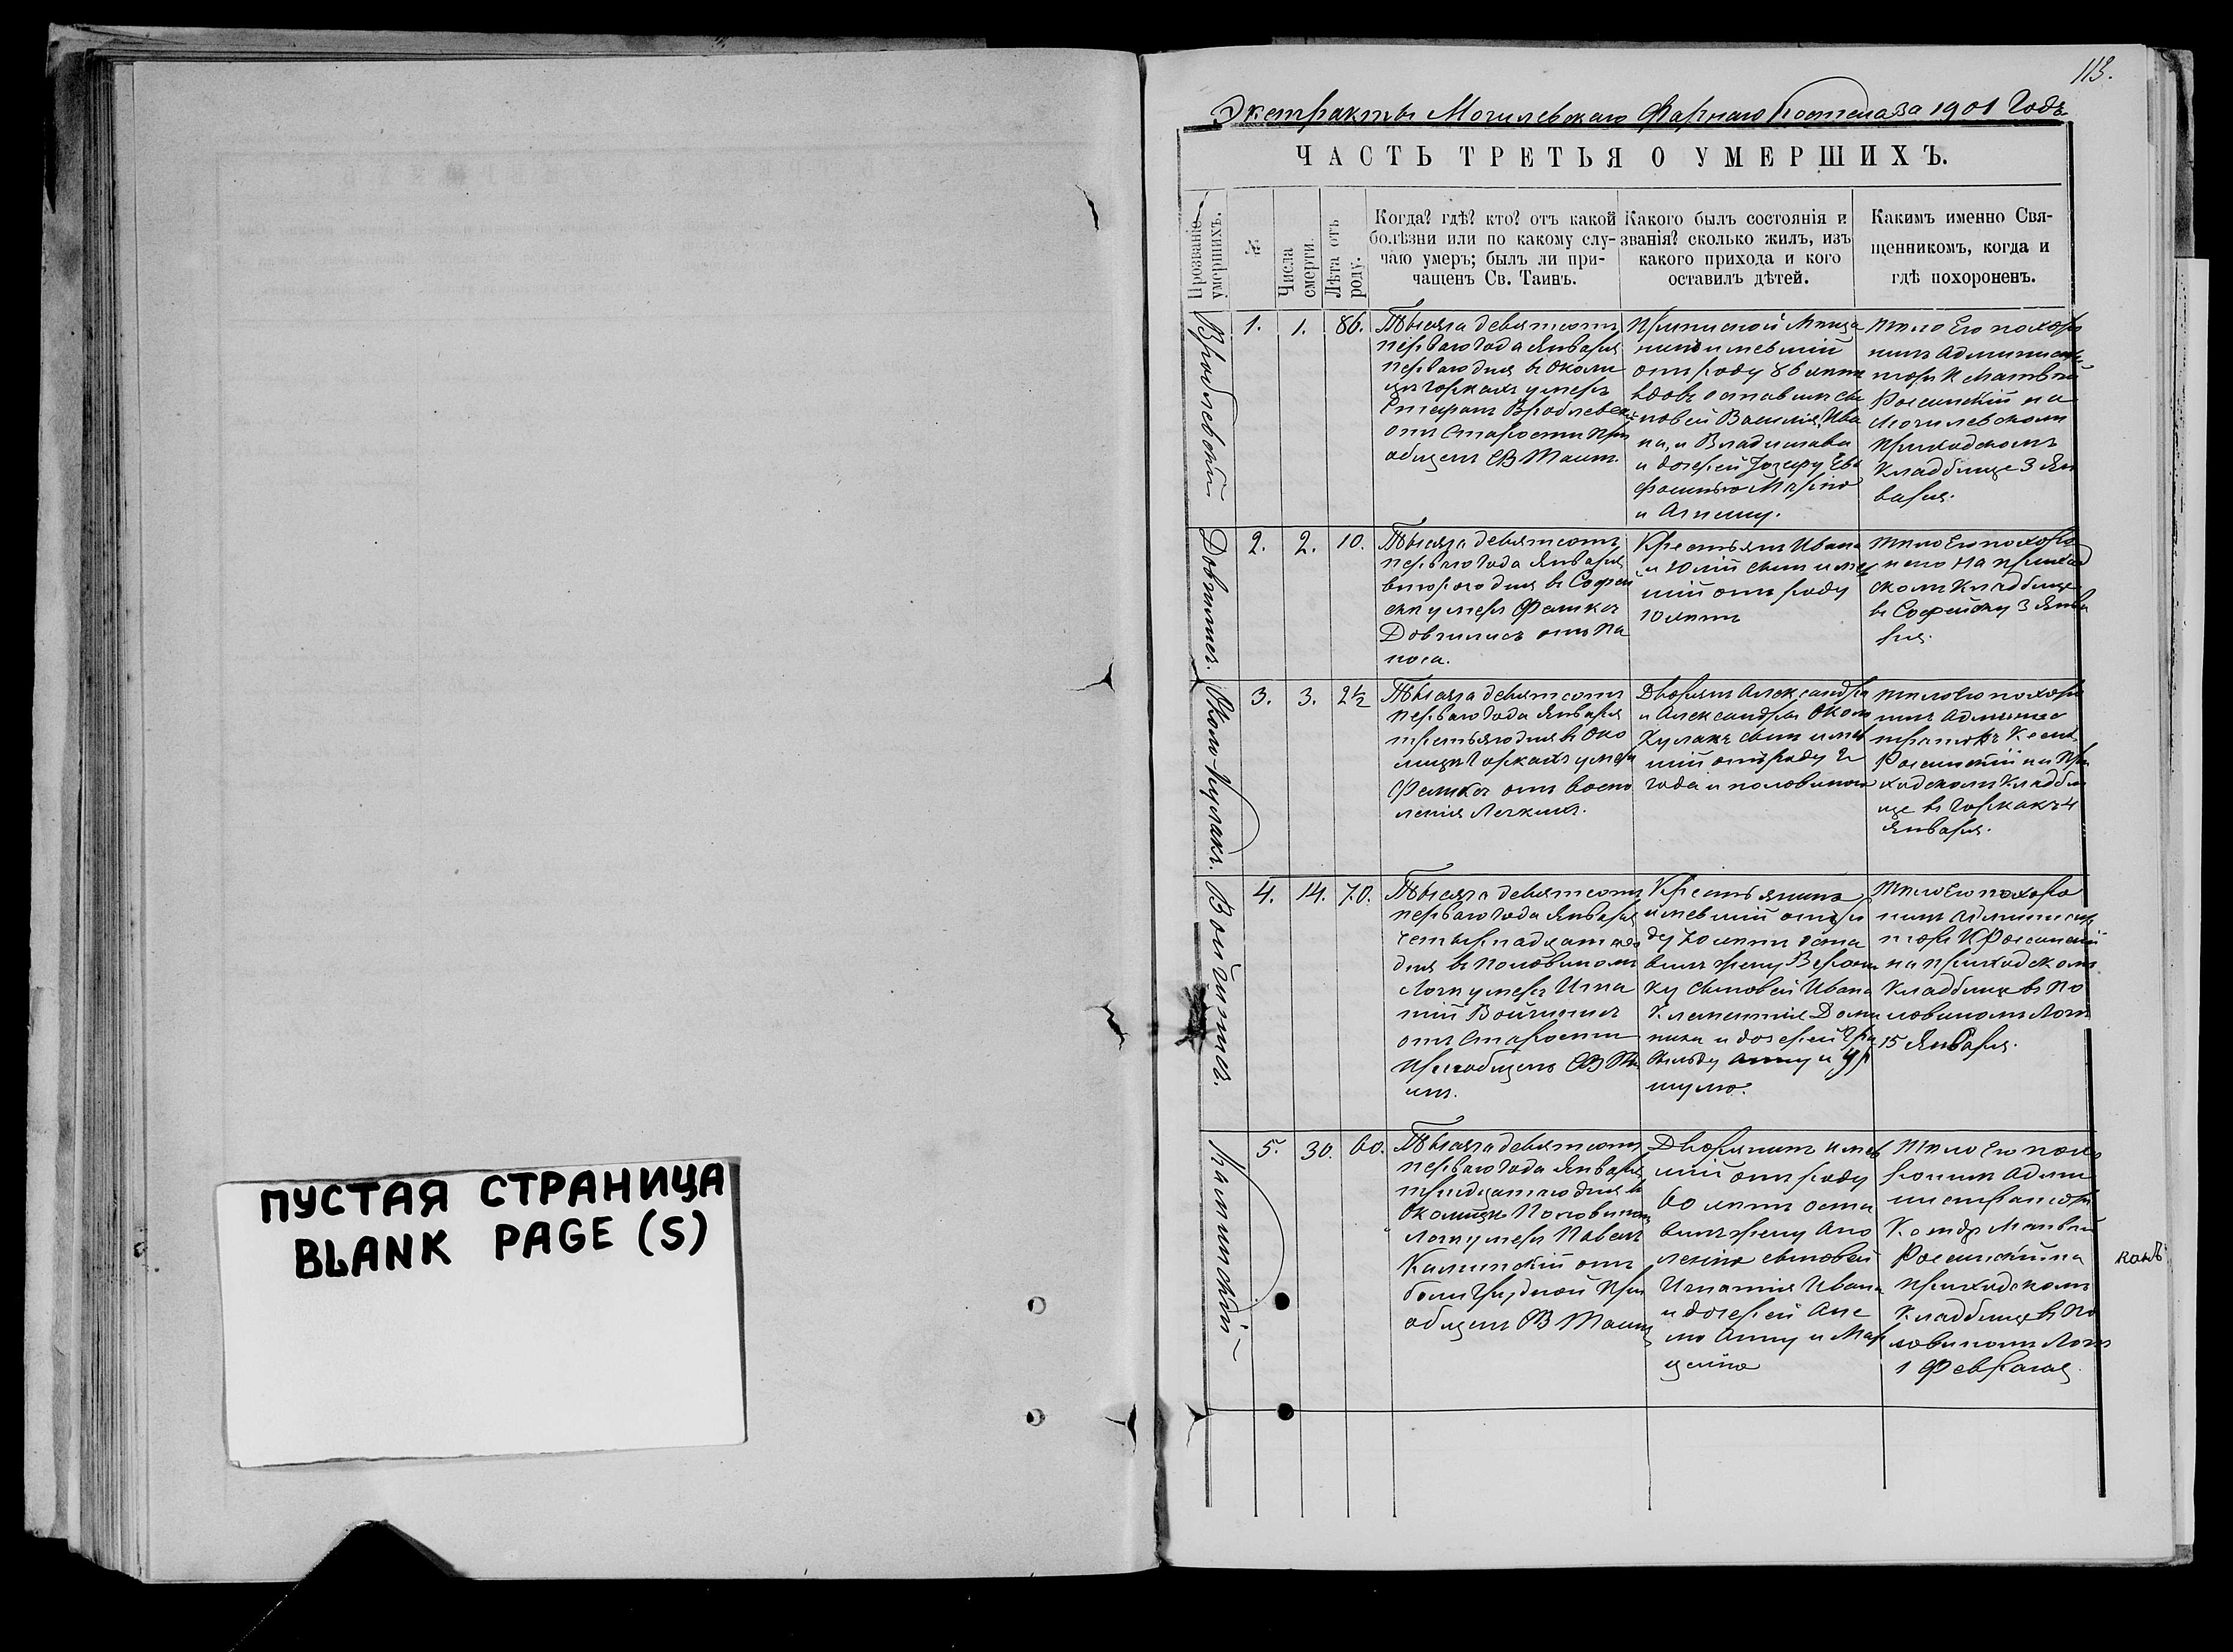 ПУСТАЯ СТРАНИЦА
BLANK PAGE (S)
113.
Экстракты Могилевскаго Фарнаго Костела за 1901 Годъ
ЧАСТЬ ТРЕТЬЯ О УМЕРШИХЪ.
Прозваніе умершихъ.
№
Числа смерти.
Лѣта отъ роду.
Когда? гдѣ? кто? отъ какой
болѣзни или по какому слу-
чаю умеръ; былъ ли при-
чащенъ Св. Таинъ.
Какого былъ состоянія и
званія? сколько жилъ, изъ
какого прихода и кого
оставилъ дѣтей.
Какимъ именно Свя-
щенникомъ, когда и
гдѣ похороненъ.
Вроблевскій
1.
1.
86.
Тысяча девятсотъ
перваго года Января
перваго дня въ Околи
цѣ Горкахъ умеръ
Стефанъ Вроблевск
отъ старости При
общенъ СВ Таинъ.
имевшій
отъ роду 86 лѣтъ
вдовъ оставилъ сы
новей Василія, Ива
на, и Владислава
и дочерей Юзефу Ев
фоминью Марію
и Агнешу.
Тѣло Его похоро
нилъ Админист
торъ К Матвѣй
на
Могилевскомъ
Приходскомъ
Кладбище 3 Ян
варя.
2.
2.
10.
Тысяча девятсотъ
перваго года Января
второго дня въ Софей
ску умеръ Феликсъ
отъ
Крестьянъ Ивана
и Юліи сынъ имев
шій отъ роду
10 лѣтъ
Тѣло Его похоро
нено на приход
скомъ кладбище
въ Софейску 3 Янва
ря.
Около-Кулакъ.
3.
3.
2½
Тысяча девятсотъ
перваго года Января
третьяго дня въ Око
лицѣ Горкахъ умеръ
Феликсъ отъ Воспа
ленія Легкихъ.
Дворянъ Александра
и Александры Около
Кулакъ сынъ имев
шій отъ роду 2
года и половиною
Тѣло Его похоро
нилъ Админис
траторъ
на При
ходскомъ Кладби
ще въ Горкахъ 4
Января.
4.
14.
70.
Тысяча девятсотъ
перваго года Января
четырнадцатаго
дня въ Половиномъ
Логѣ умеръ Игна
тій
отъ Старости
Приобщенъ СВ Та
инъ.
Крестьянинъ
имевшій отъ ро
ду 70 лѣтъ оста
вилъ жену Верони
ку сыновей Ивана
Клементія Доми
ника и дочерей
Анну и Ур
шулю.
Тѣло Его похоро
нилъ Админист
торъ К
на приходскомъ
Кладбище въ По
ловиномъ Логѣ
15 Января.
Каминскій
5.
30.
60.
Тысяча девятсотъ
перваго года Января
тридцатаго дня въ
Околицѣ Половиномъ
Логѣ умеръ Павелъ
Каминскій отъ
боли Грудной При
общенъ СВ Таинъ
Дворянинъ имев
шій отъ роду
60 лѣтъ оста
вилъ жену Апо
лонію сыновей
Игнатія Ивана
и дочерей Але
ю Анну и Мар
целію
Тѣло Его похо
ронилъ Адми
нистраторъ
Матвѣй
на
Приходскомъ
Кладбище въ По
ловиномъ Логѣ
1 Февраля